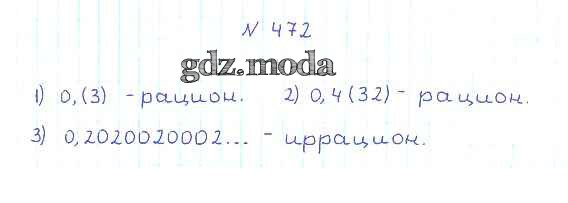 N 472
gdz.moda
1) 0,(3) - рацион. 2) 0,4(32) - рацион.
3) 0,2020020002... - иррацион.